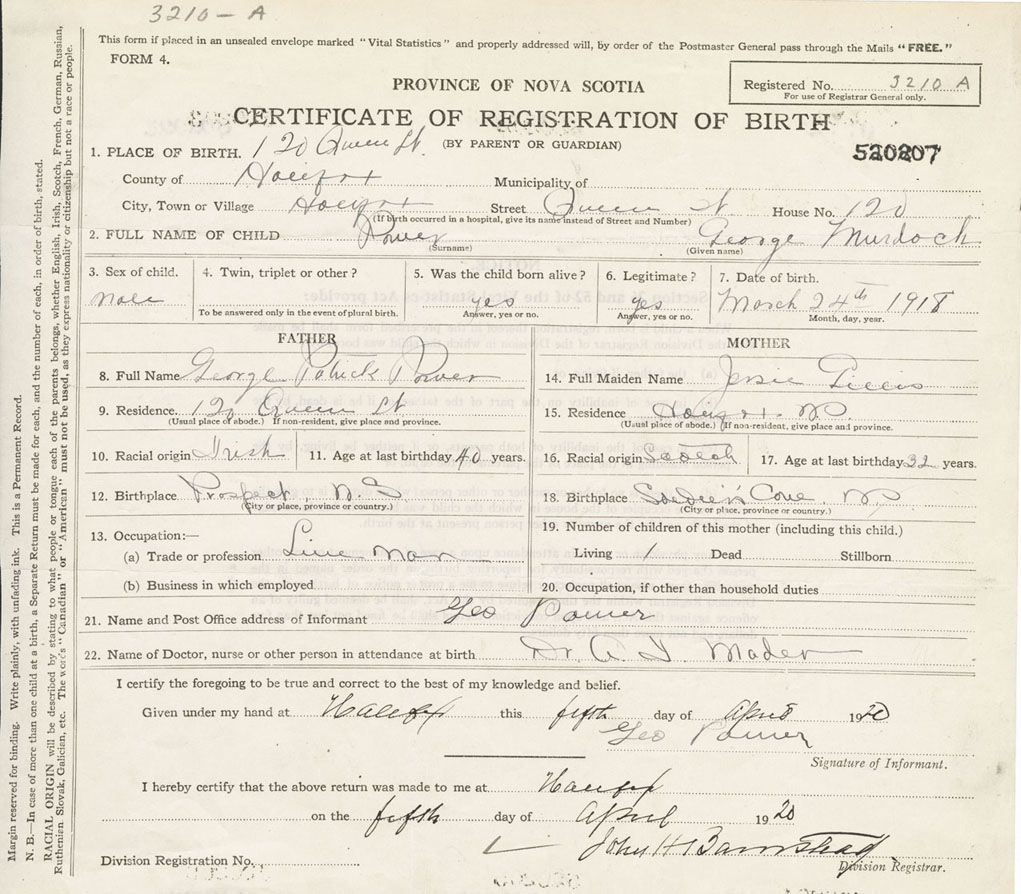 3210-A
This form if placed in an unsealed envelope marked "Vital Statistics" and properly addressed will, by order of the Postmaster General pass through the Mails "FREE."
FORM 4.
PROVINCE OF NOVA SCOTIA
Registered No. 3210 A
For use of Registrar General only.
CERTIFICATE OF REGISTRATION OF BIRTH
(BY PARENT OR GUARDIAN)
520207
1. PLACE OF BIRTH. 120 Queen St.
County of Halifax Municipality of
City, Town or Village Halifax Street Queen St House No. 120
(If birth occurred in a hospital, give its name instead of Street and Number)
2. FULL NAME OF CHILD Power George Murdoch
(Surname) (Given name)
3. Sex of child. 4. Twin, triplet or other? 5. Was the child born alive? 6. Legitimate? 7. Date of birth.
male yes yes March 24th 1918
To be answered only in the event of plural birth. Answer, yes or no. Answer, yes or no. Month, day, year.
FATHER MOTHER
8. Full Name George Patrick Power 14. Full Maiden Name Jessie Gillis
9. Residence. 120 Queen St 15. Residence Halifax. N.S.
(Usual place of abode.) If non-resident, give place and province. (Usual place of abode.) (If non-resident, give place and province.
10. Racial origin Irish 11. Age at last birthday 40 years. 16. Racial origin Scotch 17. Age at last birthday 32 years.
12. Birthplace Prospect N.S 18. Birthplace Cove N.S
(City or place, province or country.) (City or place, province or country.)
13. Occupation:— 19. Number of children of this mother (including this child.)
(a) Trade or profession. Line man Living 1 Dead Stillborn
(b) Business in which employed 20. Occupation, if other than household duties
21. Name and Post Office address of Informant Geo Power
22. Name of Doctor, nurse or other person in attendance at birth Dr. A I Mader
I certify the foregoing to be true and correct to the best of my knowledge and belief.
Given under my hand at Halifax this fifth day of April 1920
Geo Power
Signature of Informant.
I hereby certify that the above return was made to me at Halifax
on the fifth day of April 1920
John H Barnstead
Division Registration No. Division Registrar.
Margin reserved for binding. Write plainly, with unfading ink. This is a Permanent Record.
N. B.—In case of more than one child at a birth, a Separate Return must be made for each, and the number of each, in order of birth, stated.
RACIAL ORIGIN will be described by stating to what people or tongue each of the parents belongs, whether English, Irish, Scotch, French, German, Russian,
Ruthenian Slovak, Galician, etc. The words "Canadian" or "American" must not be used, as they express nationality or citizenship but not a race or people.